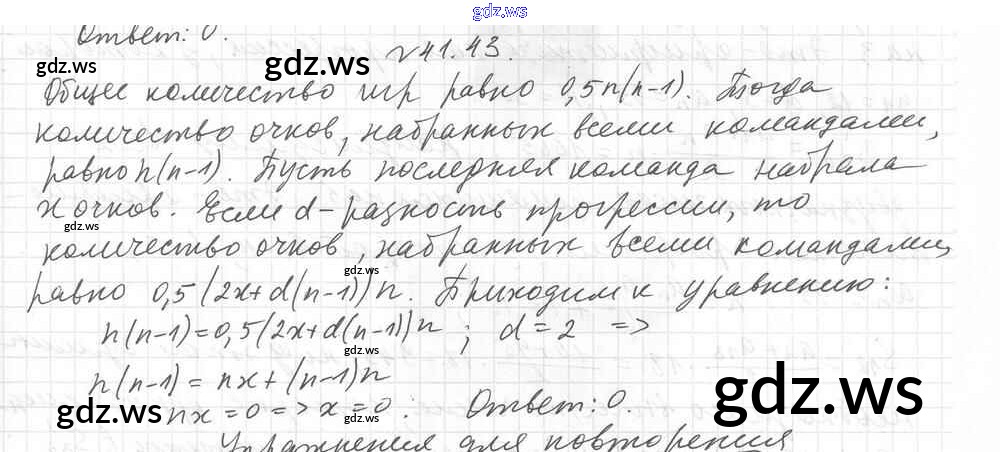 gdz.ws
Ответ: 0.
№41.43.
gdz.ws
Общее количество игр равно 0,5n(n-1). Тогда
количество очков, набранных всеми командами,
равно n(n-1). Пусть последняя команда набрала
x очков. Если d - разность прогрессии, то
gdz.ws
количество очков, набранных всеми командами,
gdz.ws
равно 0,5(2x+d(n-1))n. Приходим к уравнению:
n(n-1)=0,5(2x+d(n-1))n; d=2 =>
gdz.ws
n(n-1)=nx+(n-1)n
gdz.ws
nx=0=>x=0. Ответ: 0.
gdz.ws
gdz.ws
Упражнения для повторения